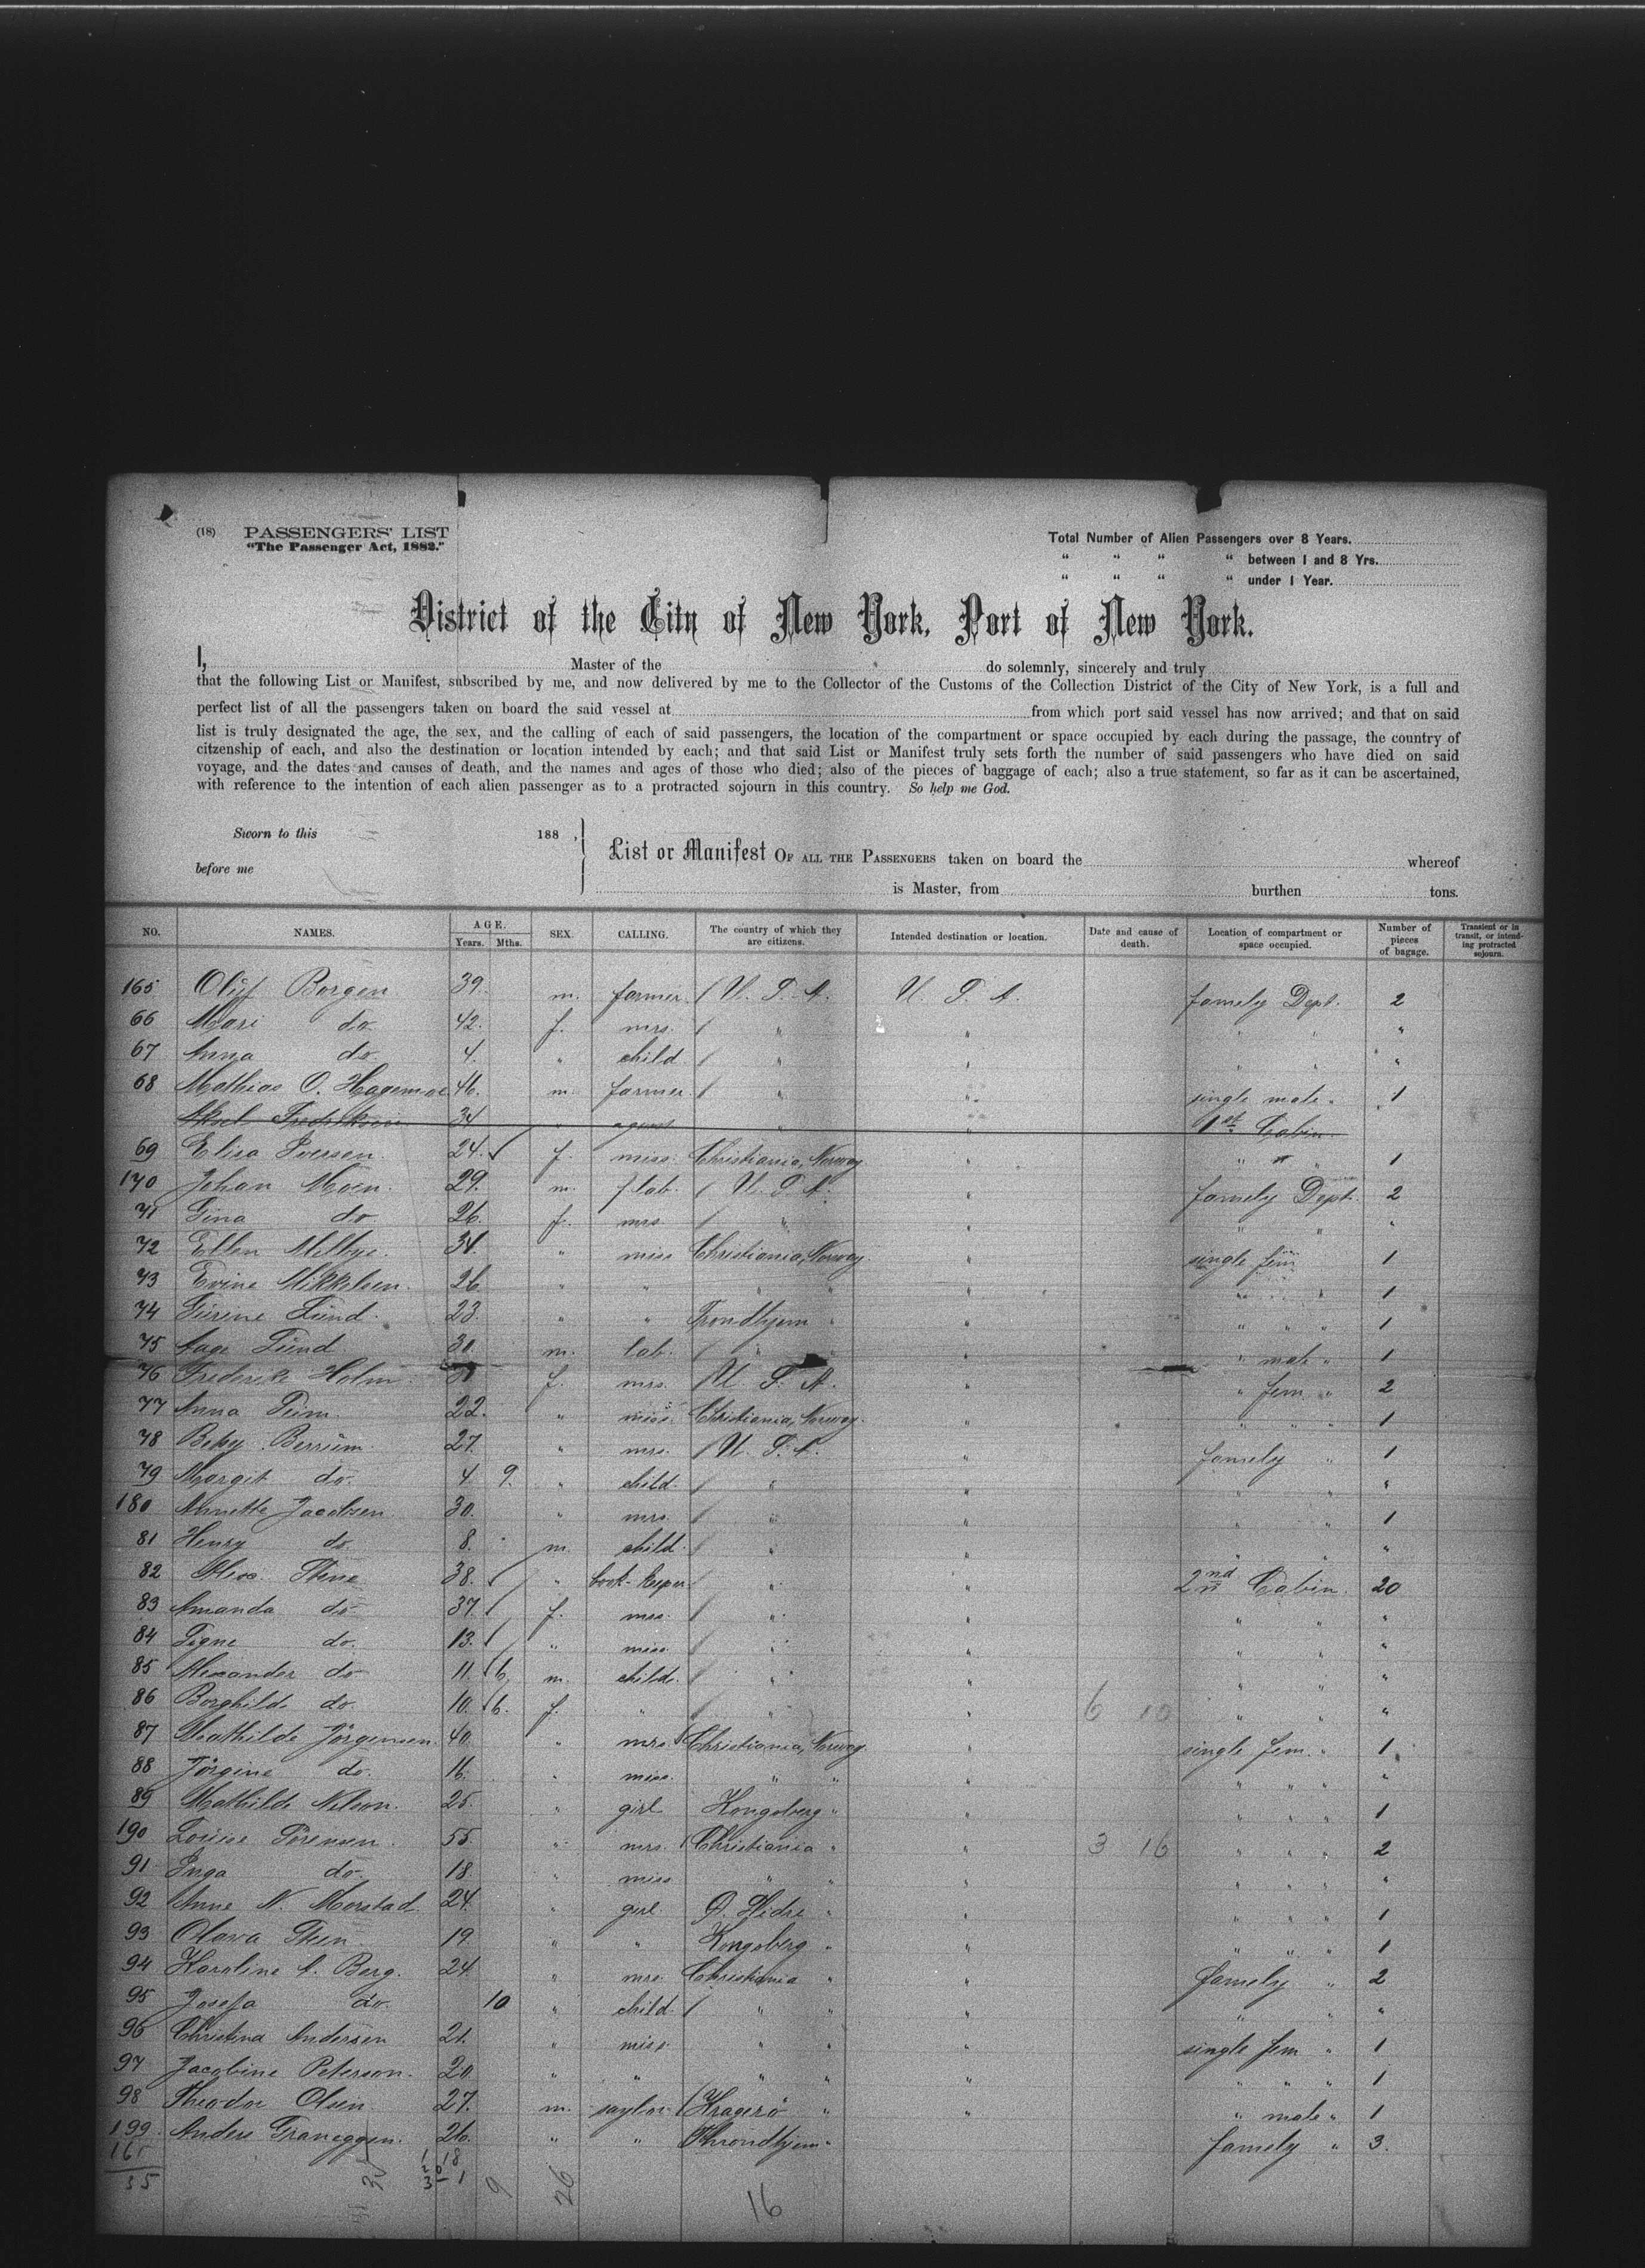 (18) PASSENGERS' LIST
"The Passenger Act, 1882."
Total Number of Alien Passengers over 8 Years.
“ “ “ “ between 1 and 8 Yrs.
“ “ “ “ under 1 Year.
District of the City of New York, Port of New York.
I, Master of the do solemnly, sincerely and truly
that the following List or Manifest, subscribed by me, and now delivered by me to the Collector of the Customs of the Collection District of the City of New York, is a full and
perfect list of all the passengers taken on board the said vessel at from which port said vessel has now arrived; and that on said
list is truly designated the age, the sex, and the calling of each of said passengers, the location of the compartment or space occupied by each during the passage, the country of
citzenship of each, and also the destination or location intended by each; and that said List or Manifest truly sets forth the number of said passengers who have died on said
voyage, and the dates and causes of death, and the names and ages of those who died; also of the pieces of baggage of each; also a true statement, so far as it can be ascertained,
with reference to the intention of each alien passenger as to a protracted sojourn in this country. So help me God.
Sworn to this 188 ,
before me
List or Manifest OF ALL THE PASSENGERS taken on board the whereof
is Master, from burthen tons.
NO. NAMES. AGE. Years. Mths. SEX. CALLING. The country of which they are citizens. Intended destination or location. Date and cause of death. Location of compartment or space occupied. Number of pieces of bagage. Transient or in transit, or intending protracted sojourn.
165 Oluf Borgen 39. m. farmer. U. S. A. U. S. A. famely Dept. 2
66 Mari do 42. f. mrs. " " " " "
67 Anna do. 4. " child " " " " "
68 Mathias O. 46. m. farmer. " " single male " 1
34 " agent " " 1st Cabin
69 Elisa Iversen. 24. f. miss. Christiania, Norway " " " 1
170 Johan Moen. 29. m. f. lab. U. S. A. " famely Dept. 2
71 Gina do 26. f. mrs " " " " "
72 Ellen Melbye. 31. " miss Christiania, Norway. " single fem 1
73 Evine Mikkelsen. 26 " " " " " " " 1
74 Lund. 23. " " Trondhjem " " " " " 1
75 Aage Lund 30. m. lab. " " " male " 1
76 Frederik Holm f. mrs. U. S. A. " " fem " 2
77 Anna 22. " miss. Christiania, Norway. " " " " 1
78 Berrum. 27. " mrs. U. S. A. " famely " 1
79 Margit do. 4 9. " child. " " " " "
180 Annette Jacobsen 30. " mrs. " " " " 1
81 Henry do 8. m. child. " " " " "
82 Alex. Thene 38. " book-keeper " " 2nd Cabin. 20
83 Amanda do 37. f. mrs. " " " " "
84 Signe do. 13. " miss " " " " "
85 Alexander do 11. 6, m. childr. " " " " "
86 Borghild do. 10. 6. f. " " " 6 10 " " "
87 Mathilde Jörgensen. 40. " mrs. Christiania, Norway. " single fem. " 1
88 Jörgine do. 16. " miss. " " " " " " "
89 Mathilde Nelson. 25. " girl Kongsberg " " " " " 1
190 Louise Sörensen. 55. " mrs. Christiania " " 3 16 " " " 2
91 Inga do. 18. " miss " " " " " " "
92 Anne N. Morstad. 24. " girl " " " " " 1
93 Olava 19 " " Kongsberg " " " " " 1
94 Karoline A. Berg. 24. " mrs. Christiania " " famely " 2
95 Josefa do. 10 " child. " " " " " "
96 Christina Andersen 21. " miss. " " " single fem " 1
97 Jacobine Peterson. 20 " " " " " " " " 1
98 Theodor Olsen 27. m. saylor Kragerö " " " male " 1
199. Anders 26. " " Throndhjem " famely " 3.
165
35
1 18
2 0
3 – 1
9 26 16